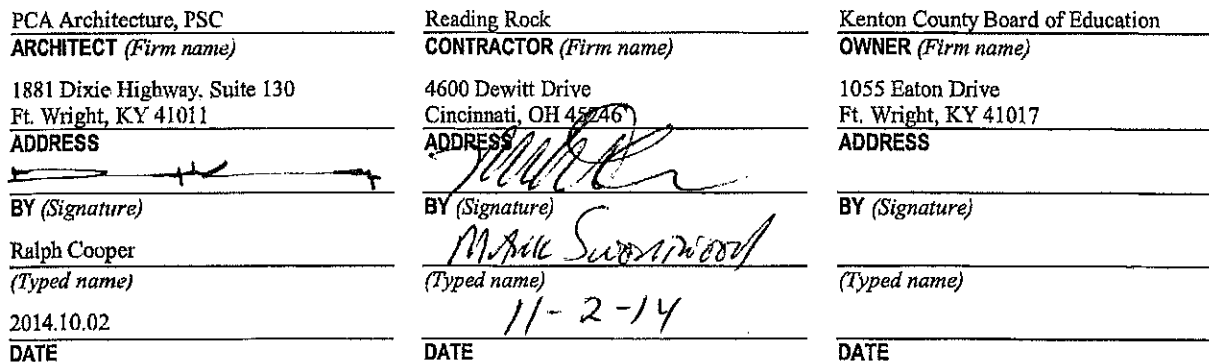 PCA Architecture, PSC
ARCHITECT (Firm name)
1881 Dixie Highway, Suite 130
Ft. Wright, KY 41011
ADDRESS
BY (Signature)
Ralph Cooper
(Typed name)
2014.10.02
DATE
Reading Rock
CONTRACTOR (Firm name)
4600 Dewitt Drive
Cincinnati, OH 45246
ADDRESS
BY (Signature)
Mark
(Typed name)
11-2-14
DATE
Kenton County Board of Education
OWNER (Firm name)
1055 Eaton Drive
Ft. Wright, KY 41017
ADDRESS
BY (Signature)
(Typed name)
DATE